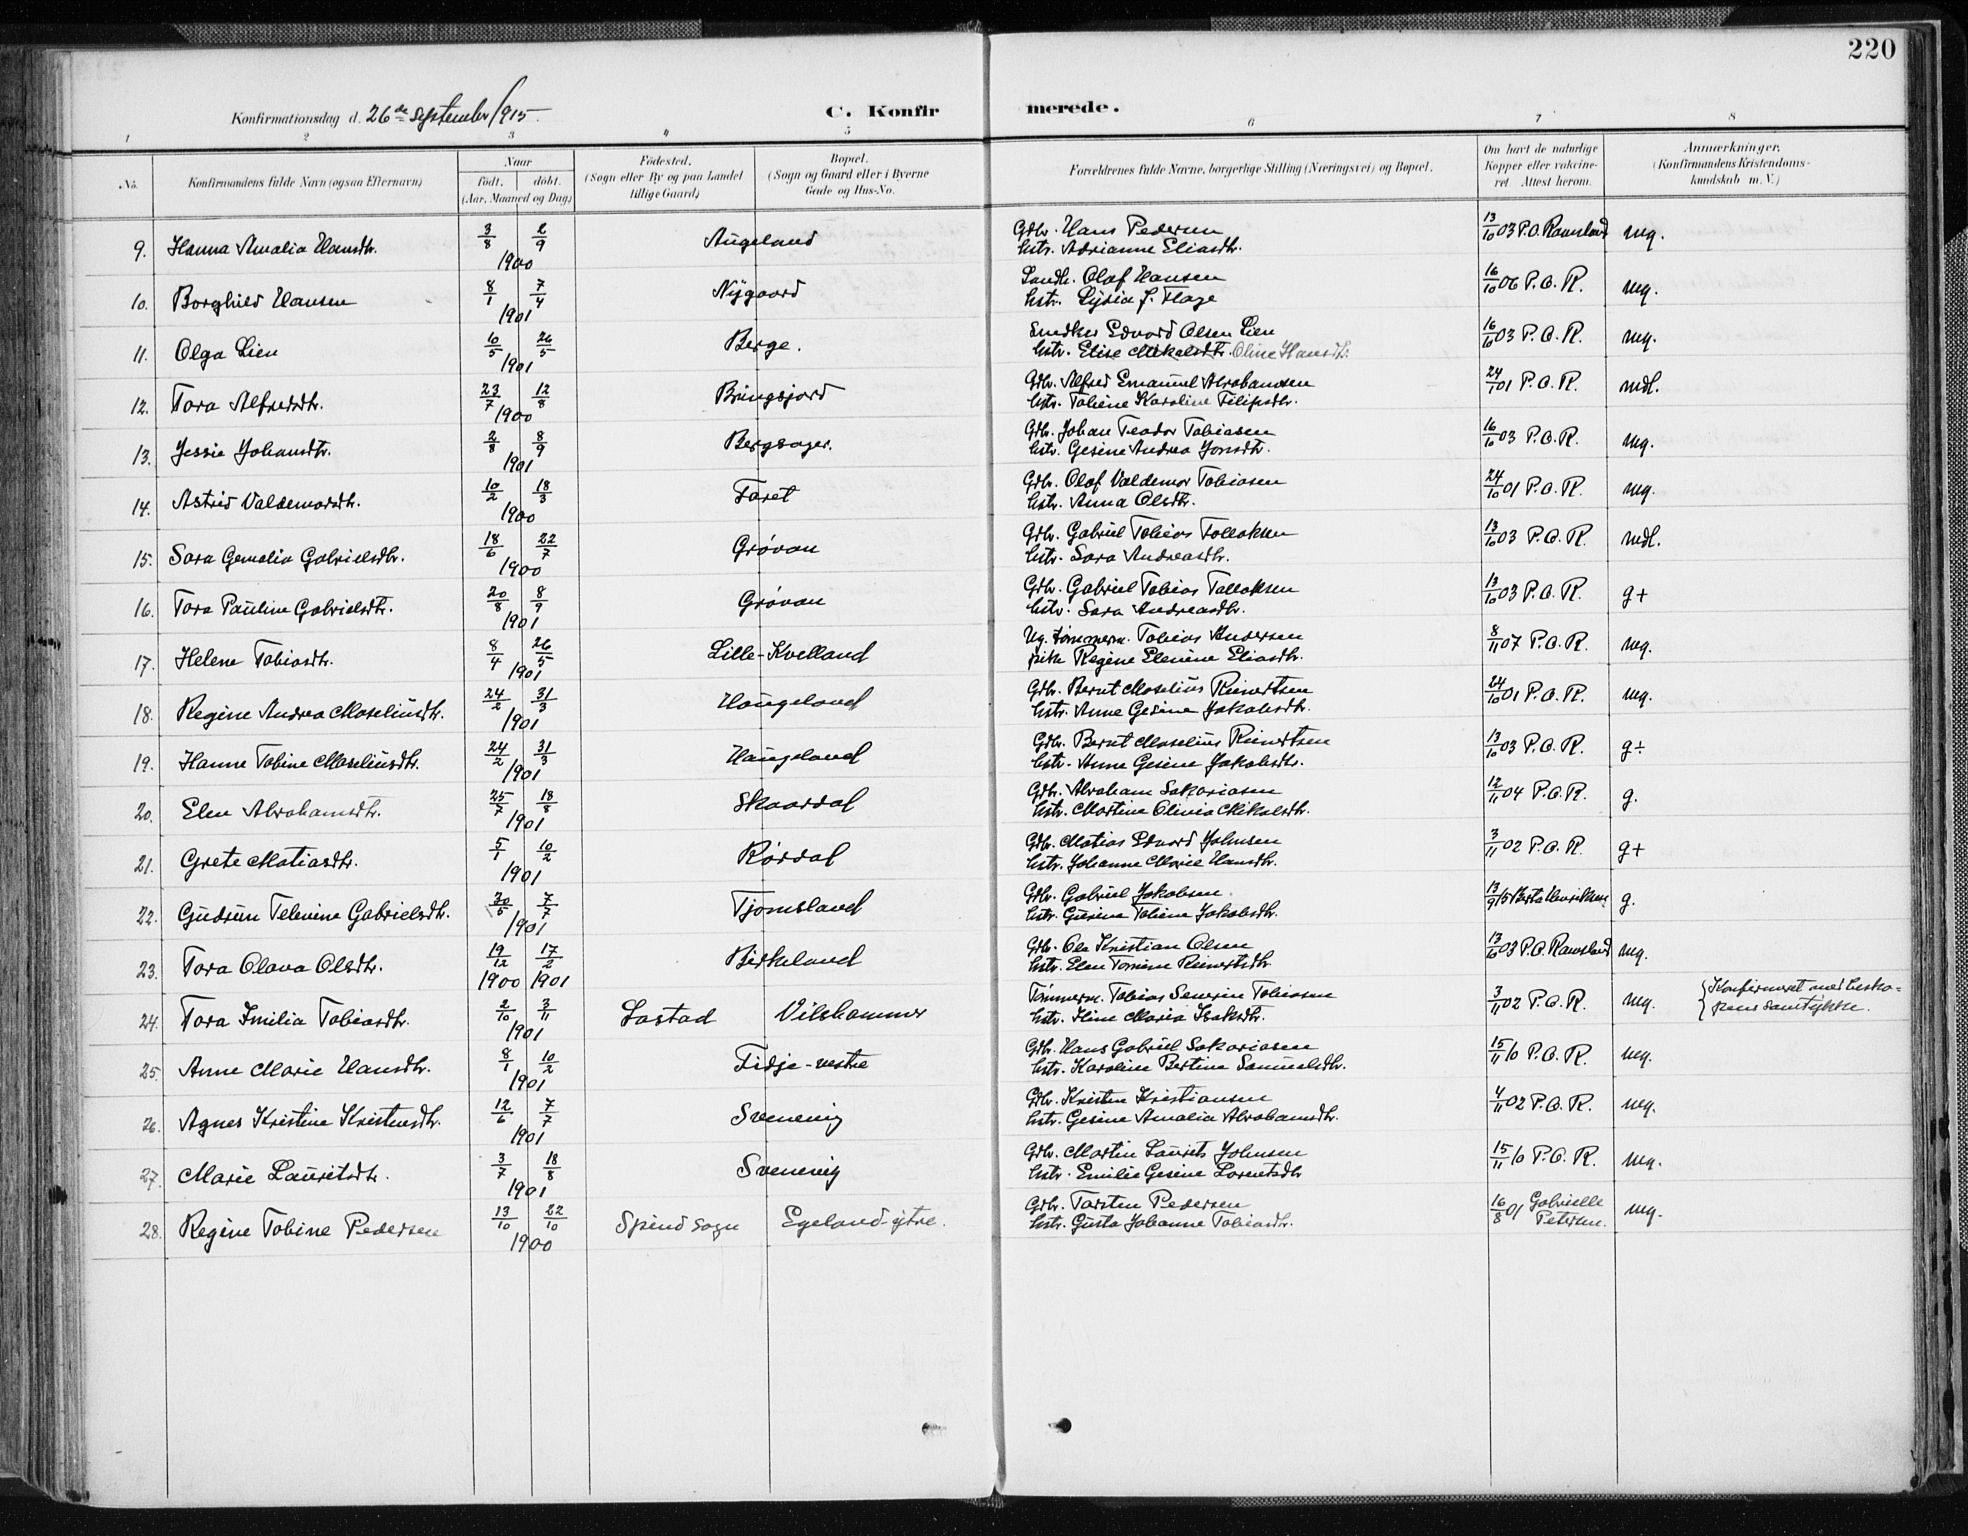 220
Konfirmationsdag d. 26de September 1915. C. Konfirmerede.
1 2 3 4 5 6 7 8
No. Konfirmandens fulde Navn (ogsaa Efternavn) Naar født, døbt. (Aar, Maaned og Dag) Fødested. (Sogn eller By og paa Landet tillige Gaard) Bopæl. (Sogn og Gaard eller i Byerne Gade og Hus-No. Forældrenes fulde Navne, borgerlige Stilling (Næringsvei) og Bopæl. Om havt de naturlige Kopper eller vakcineret. Attest herom. Anmærkninger. (Konfirmandens Kristendomskundskab m. V.)
9. Hanna Amalia Hansdtr. 3/8 2/9 1900 Augeland Gdbr. Hans Pedersen 13/10 03 P.O. Ramsland mg.
hstr. Adrianne Eliasdtr.
10. Borghild Hansen 8/1 7/4 1901 Nygaard Landh. Olaf Hansen 16/10 06 P.O.R. mg.
hstr. Lydia J. Hage
11. Olga Lien 10/5 26/5 1901 Berge. Snedker Edvard Olsen Lien 16/10 03 P.O.R. mg.
hstr. Elise Mikalsdtr. Oline Hansdtr.
12. Tora Alfredsdtr. 23/7 12/8 1900 Bringsjord Gdbr. Alfred Emanuel Abrahamsen 24/7 01 P.O.R. mdl.
hstr. Tobine Karoline Filipsdtr.
13. Jessie Johansdtr. 2/8 8/9 1901 Bergsager. Gdbr. Johan Teodor Tobiasen 16/10 03 P.O.R. mg.
hstr. Gesine Andrea Jonsdtr.
14. Astrid Valdemarsdtr. 10/2 18/3 1900 Faret Gdbr. Olaf Valdemar Tobiasen 24/10 01 P.O.R. mg.
hstr. Anna Olsdtr.
15. Sara Gemalia Gabrielsdtr. 18/6 22/7 1900 Grøvan Gdbr. Gabriel Tobias Tollaksen 13/10 03 P.O.R. mdl.
hstr. Sara Andreasdtr.
16. Tora Pauline Gabrielsdtr. 20/8 8/9 1901 Grøvan Gdbr. Gabriel Tobias Tallaksen 13/10 03 P.O.R. g+
hstr. Sara Andreasdtr.
17. Helene Tobiasdtr. 8/4 26/5 1901 Lille-Kvelland Ug. tømmerm. Tobias Andersen 8/11 07 P.O.R. mg.
pike Regine Elenine Eliasdtr.
18. Regine Andrea Moseliusdtr. 24/2 31/3 1901 Haugeland Gdbr. Bernt Moselius Reinertsen 24/10 01 P.O.R. mg.
hstr. Anne Gesine Jakobsdtr.
19. Hanne Tobine Moseliusdtr. 24/2 31/3 1901 Haugeland Gdbr. Bernt Moselius Reinertsen 13/10 03 P.O.R. g÷
hstr. Anne Gesine Jakobsdtr.
20. Elen Abrahamsdtr. 25/7 18/8 1901 Skaardal Gdbr. Abraham Sakariasen 12/11 04 P.O.R. g.
hstr. Martine Olivia Mikalsdtr.
21. Grete Matiasdtr. 5/1 10/2 1901 Rørdal Gdbr. Matias Edvard Johnsen 3/11 02 P.O.R. g+
hstr. Johanne Marie Hansdtr.
22. Gudrun Televine Gabrielsdtr. 30/5 7/7 1901 Tjomsland Gdbr. Gabriel Jakobsen 13/9 15 Berta Henriksen g.
hstr. Gurine Tobine Jakobsdtr.
23. Tora Olava Olsdtr. 19/12 17/2 1900 1901 Birkeland Gdbr. Ole Kristian Olsen 13/10 03 P.O. Ramsland mg.
hstr. Elen Tomine Reinertsdtr
24. Tora Emilia Tobiasdtr. 2/10 3/11 1901 Lastad Vilshammer Tømmerm. Tobias Severin Tobiasen 3/11 02 P.O.R. mg. Konfirmeret med bisko-
hstr. Stine Maria Isaksdtr. pens samtykke.
25. Anne Marie Hansdtr. 8/1 10/2 1901 Fidje-vestre Gdbr. Hans Gabriel Sakariasen 15/11 10 P.O.R. mg.
hstr. Karoline Bertine Samuelsdtr.
26. Agnes Kristine Kristensdtr. 12/6 7/7 1901 Svenevig Gdbr. Kristen Kristiansen 4/11 02 P.O.R. mg.
hstr. Gesine Amalia Abrahamsdtr.
27. Marie Lauritsdtr. 3/7 18/8 1901 Svenevig Gdbr. Martin Laurits Johnsen 15/11 10 P.O.R. mg.
hstr. Emilie Gesine Lorentsdtr
28. Regine Tobine Pedersen 13/10 22/10 1900 Spind sogn Egeland-ytre. Gdbr. Torsten Pedersen 16/8 01 Gabrielle Petersen. mg.
hstr. Gusta Johanne Tobiasdtr.